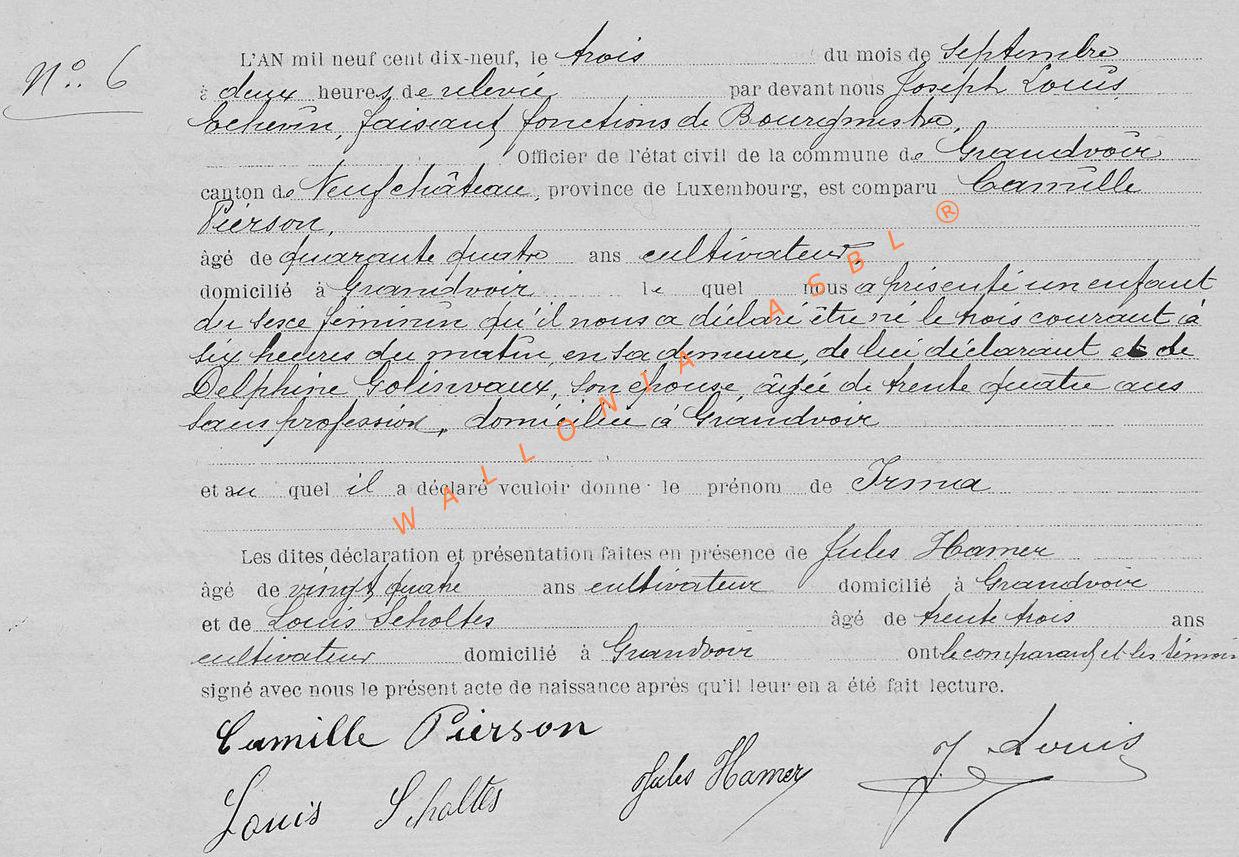 N°. 6
L'AN mil neuf cent dix-neuf, le trois du mois de Septembre
à deux heures de relevée par devant nous Joseph Louis,
Echevin, faisant fonctions de Bourgmestre,
Officier de l'état civil de la commune de Grandvoir
canton de Neufchâteau, province de Luxembourg, est comparu Camille
Pierson,
âgé de quarante quatre ans cultivateur,
domicilié à Grandvoir le quel nous a présenté un enfant
du sexe féminin qu'il nous a déclaré être né le trois courant à
six heures du matin, en sa demeure, de lui déclarant et de
Delphine Golinvaux, son épouse, âgée de trente quatre ans
sans profession, domiciliée à Grandvoir
et au quel il a déclaré vouloir donner le prénom de Irma
Les dites déclaration et présentation faites en présence de Jules Hamer
âgé de vingt quatre ans cultivateur domicilié à Grandvoir
et de Louis Scholtes âgé de trente trois ans
cultivateur domicilié à Grandvoir ont le comparant et les témoins
signé avec nous le présent acte de naissance après qu'il leur en a été fait lecture.
Camille Pierson
Louis Scholtes Jules Hamer J. Louis
WALLONIA ASBL ®